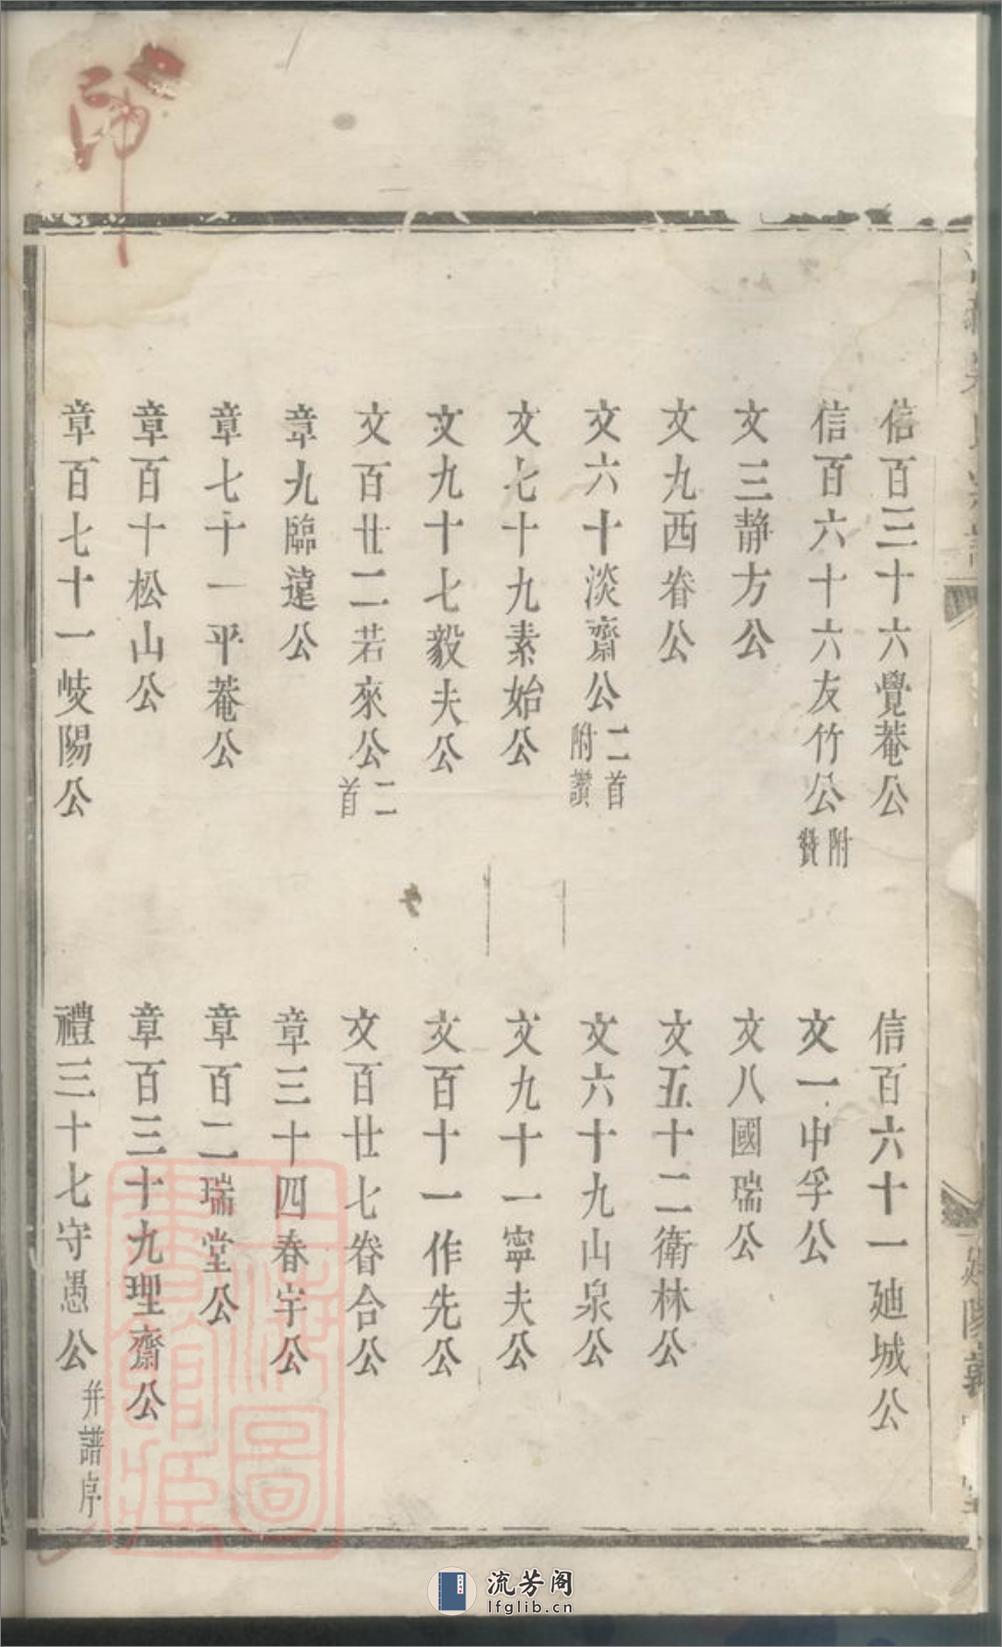 信百三十六覺菴公
信百六十一廸城公
信百六十六友竹公 附贊
文一中孚公
文三靜方公
文八國瑞公
文九西眷公
文五十二衛林公
文六十淡齋公 二首附讚
文六十九山泉公
文七十九素始公
文九十一寧夫公
文九十七毅夫公
文百十一作先公
文百廿二若來公 二首
文百廿七眷合公
章九臨遠公
章三十四春宇公
章七十一平菴公
章百二瑞堂公
章百十松山公
章百三十九理齋公
章百七十一岐陽公
禮三十七守愚公 并譜序
上海圖書館藏
流芳阁
lfglib.cn